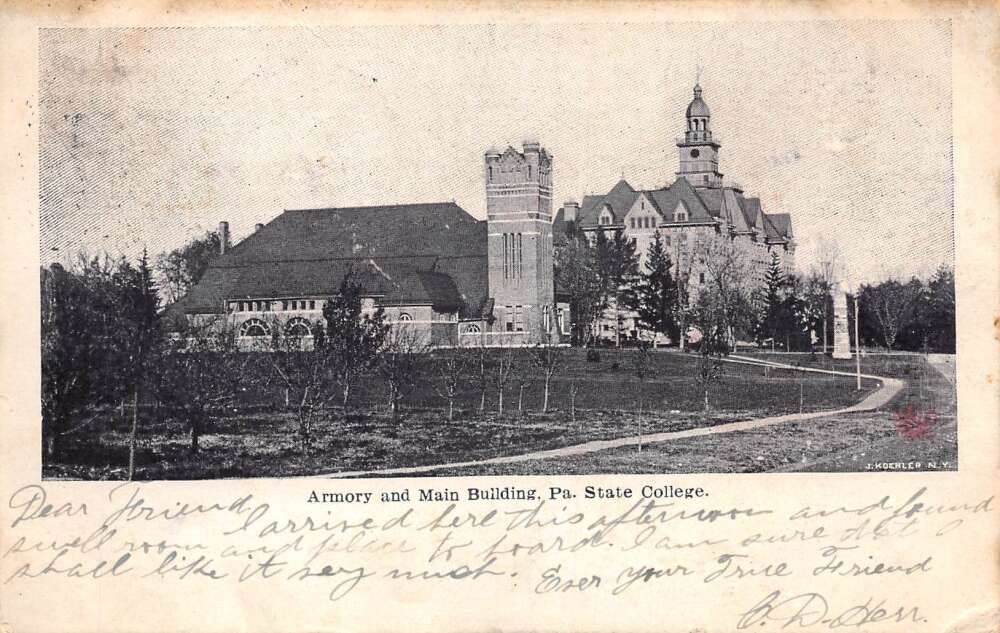 J. KOEHLER N.Y.
Armory and Main Building, Pa. State College.
Dear Friend
I arrived here this afternoon and found
swell room and place to board. I am sure that I
shall like it very much. Ever your True Friend
C. D. Herr.